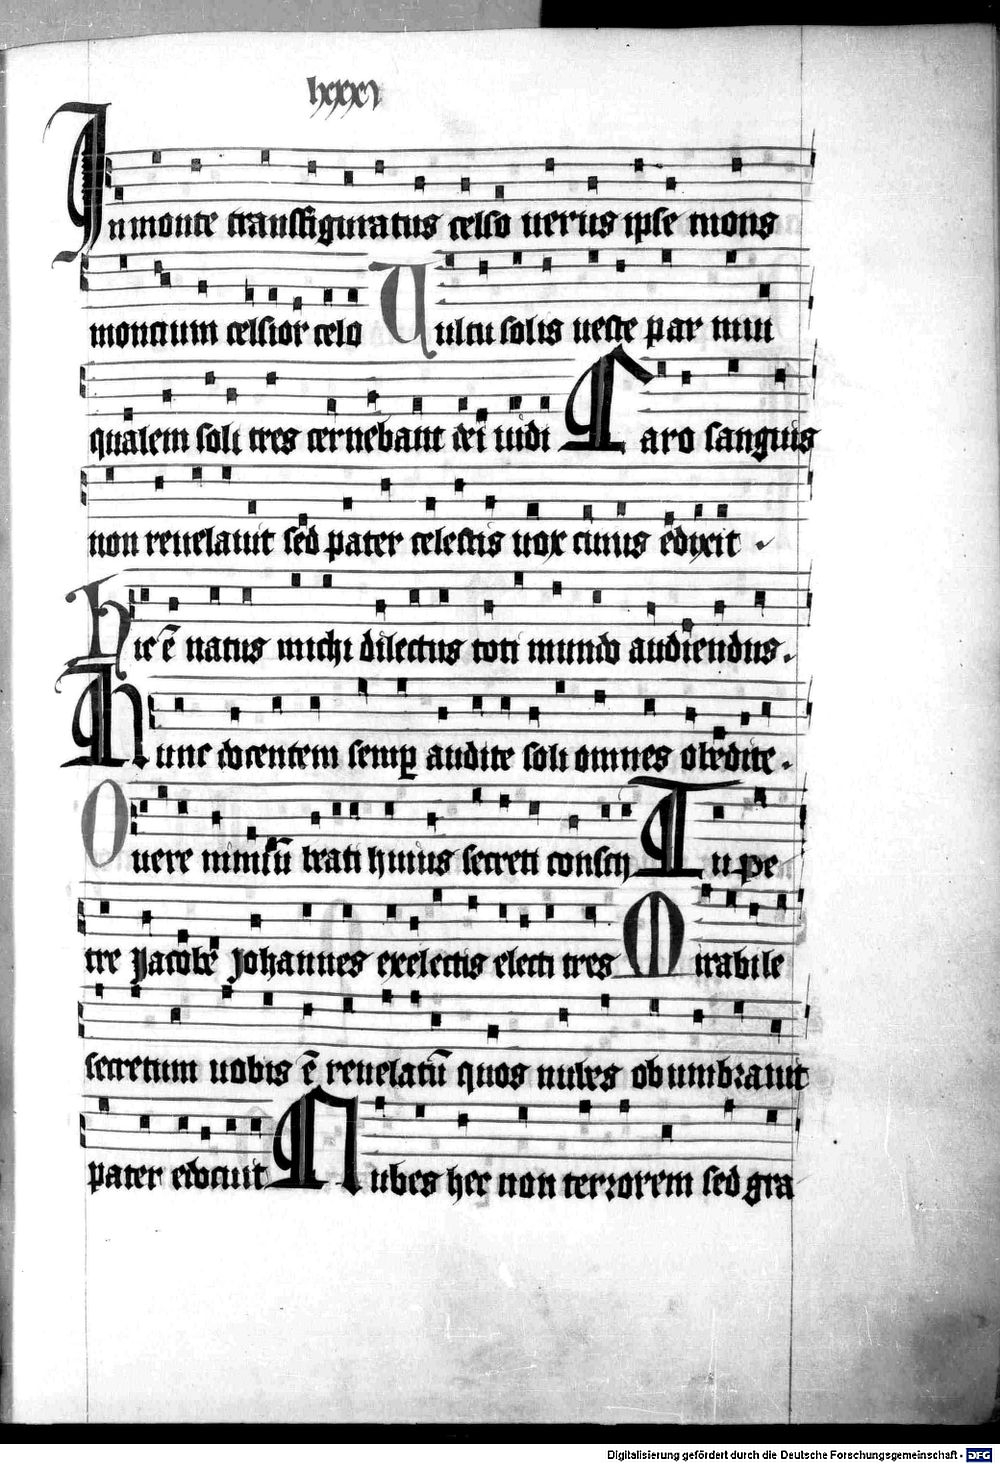 lxxxj
In monte transfiguratus celso uerus ipse mons
moncium celsior celo Uultu solis ueste par niui
qualem soli tres cernebant dei uidi Caro sanguis
non reuelauit sed pater celestis uox cuius edixit
Hic ē natus michi dilectus toti mundo audiendus.
Hunc docentem semp audite soli omnes obedite.
O uere nimiū beati huius secreti conscij Tu pe
tre Jacobe Johannes exelectis electi tres Mirabile
secretum uobis ē reuelatū quos nubes obumbrauit
pater edocuit Nubes hec non terrorem sed gra
Digitalisierung gefördert durch die Deutsche Forschungsgemeinschaft - DFG